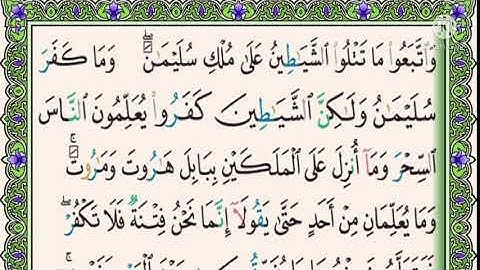 وَٱتَّبَعُوا۟ مَا تَتْلُوا۟ ٱلشَّيَٰطِينُ عَلَىٰ مُلْكِ سُلَيْمَٰنَ ۖ وَمَا كَفَرَ
سُلَيْمَٰنُ وَلَٰكِنَّ ٱلشَّيَٰطِينَ كَفَرُوا۟ يُعَلِّمُونَ ٱلنَّاسَ
ٱلسِّحْرَ وَمَآ أُنزِلَ عَلَى ٱلْمَلَكَيْنِ بِبَابِلَ هَٰرُوتَ وَمَٰرُوتَ ۚ
وَمَا يُعَلِّمَانِ مِنْ أَحَدٍ حَتَّىٰ يَقُولَآ إِنَّمَا نَحْنُ فِتْنَةٌ فَلَا تَكْفُرْ ۖ